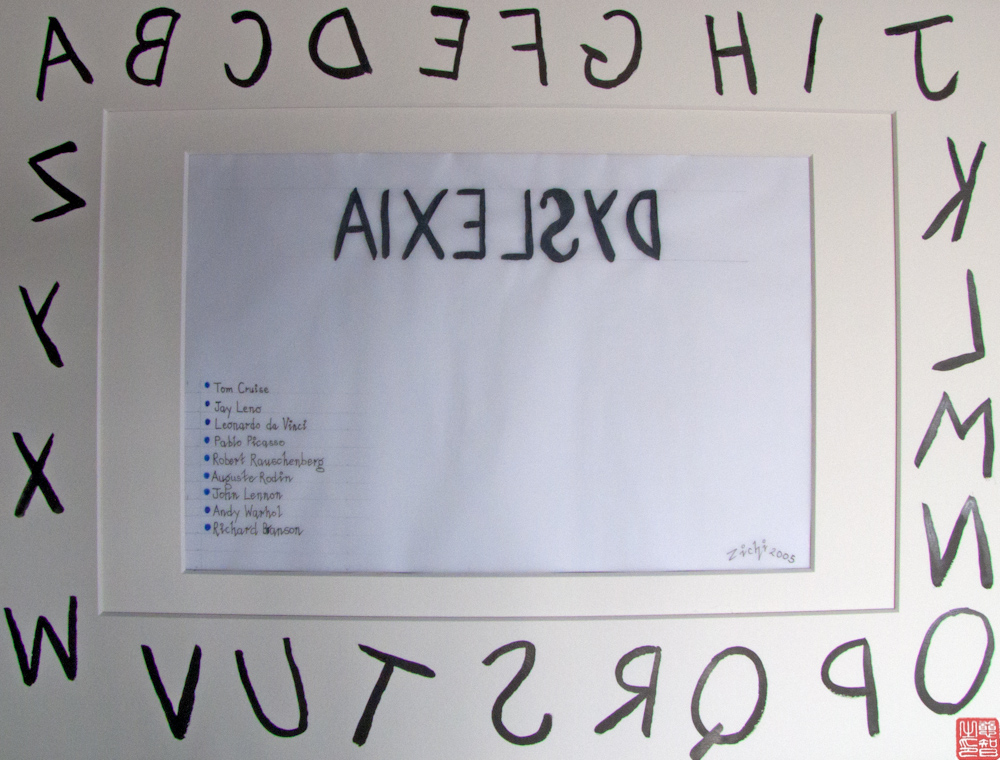 A B C D E F G H I J
K
L
M
N
O
P Q R S T U V
W
X
Y
Z
DYSLEXIA
Tom Cruise
Jay Leno
Leonardo da Vinci
Pablo Picasso
Robert Rauschenberg
Auguste Rodin
John Lennon
Andy Warhol
Richard Branson
Zichi 2005